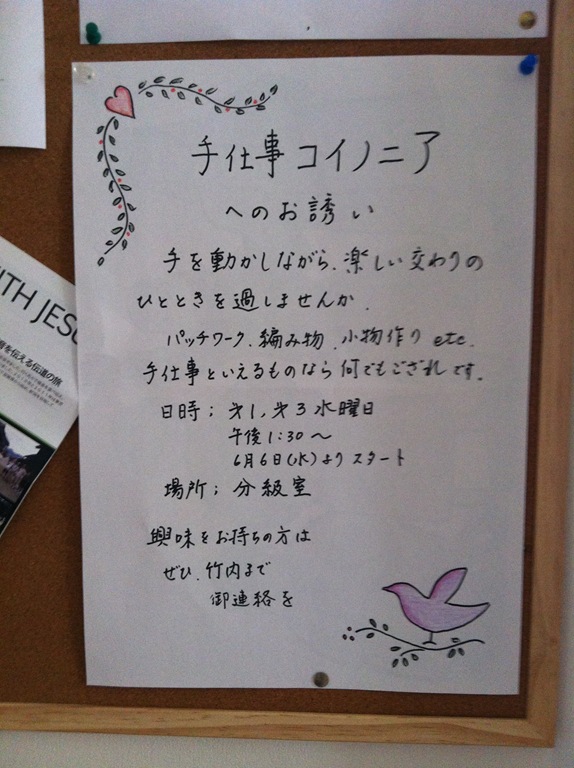 手仕事コイノニア
へのお誘い
手を動かしながら、楽しい交わりの
ひとときを過しませんか.
パッチワーク、編み物、小物作り etc.
手仕事といえるものなら何でもござれです。
日時; 才1,才3水曜日
午後1:30〜
6月6日(水)よりスタート
場所; 分級室
興味をお持ちの方は
ぜひ、竹内まで
御連絡を
ITH JESU
音を伝える伝道の旅